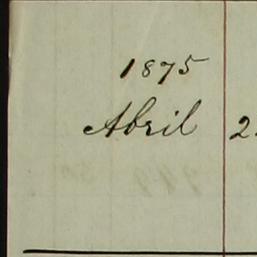 1875
Abril 2